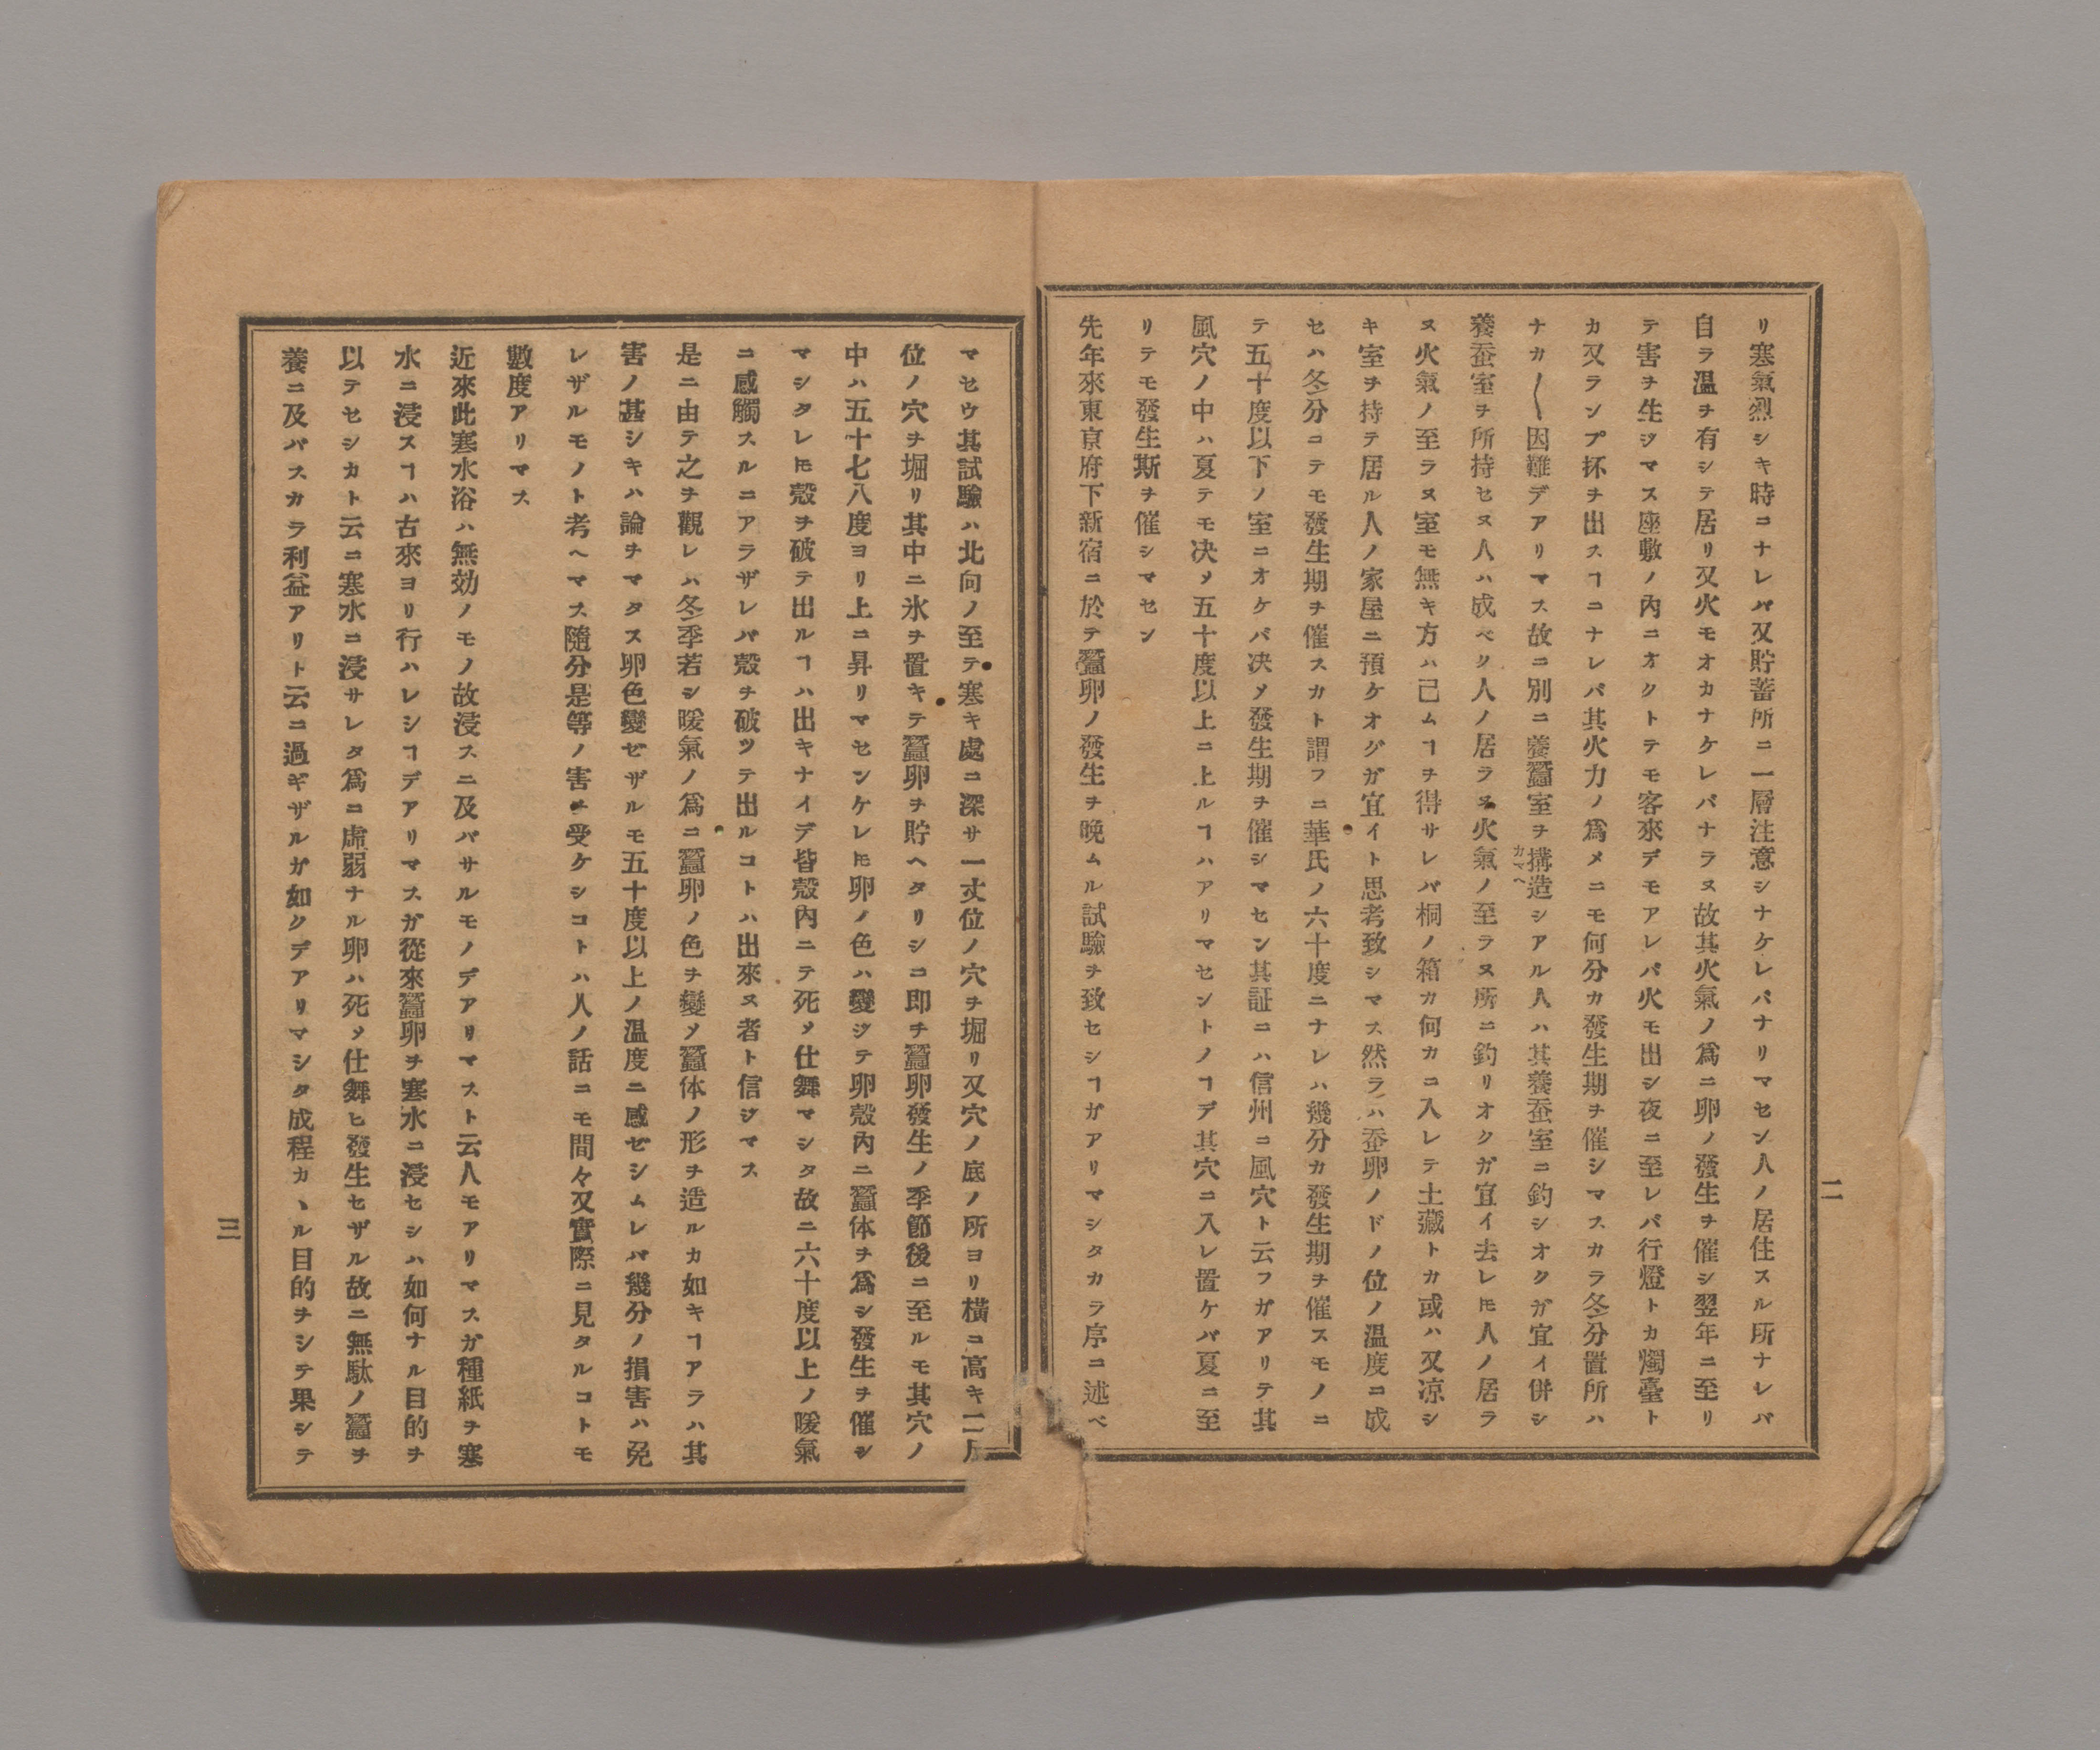 リ寒氣烈シキ時コナレバ又貯蓄所ニ一層注意シナケレバナリマセン人ノ居住スル所ナレバ
自ラ温チ有シテ居リ又火モオカナケレバナラヌ故其火氣ノ爲ニ卵ノ發生ヲ催シ翌年ニ至リ
テ害チ生ジマス座敷ノ内ニオクトテモ客來デモアレバ火モ出シ夜ニ至レバ行燈トカ燭臺ト
カ又ランプ抔チ出スヿニナレバ其火力ノ爲メニモ何分カ發生期ヲ催シマスカラ冬分置所ハ
ナカ〱因難デアリマス故ニ別ニ養蠶室ヲ搆造シアル人ハ其養蚕室ニ釣シオクガ宜イ併シ
カマヘ
養蚕室ヲ所持セヌ人ハ成ベク人ノ居ラヌ火氣ノ至ラヌ所ニ釣リオクガ宜イ去レ𪜈人ノ居ラ
ヌ火氣ノ至ラヌ室モ無キ方ハ己ムヿヲ得サレバ桐ノ箱カ何カニ入レテ土藏トカ或ハ又凉シ
キ室ヲ持テ居ル人ノ家屋ニ預ケオクガ宜イト思考致シマス然ラハ蚕卵ノドノ位ノ温度コ成
セハ冬分コテモ發生期ヲ催スカト謂フニ華氏ノ六十度ニナレハ幾分カ發生期チ催スモノニ
テ五十度以下ノ室ニオケバ决メ發生期ヲ催シマセン其証ニハ信州コ風穴ト云フガアリテ其
風穴ノ中ハ夏テモ决ソ五十度以上ニ上ルヿハアリマセントノヿデ其穴ニ入レ置ケバ夏ニ至
リテモ發生斯ヲ催シマセン
先年來東京府下新宿ニ於テ蠶卵ノ發生ヲ晩ムル試驗チ致セシヿガアリマシタカラ序コ述ベ
二
マセウ其試驗ハ北向ノ至テ寒キ處コ深サ一丈位ノ穴チ堀リ又穴ノ底ノ所ヨリ横コ高キ二尺
位ノ穴ヲ堀リ其中ニ氷チ置キテ蠶卵ヲ貯ヘタリシコ即チ蠶卵發生ノ季節後ニ至ルモ其穴ノ
中ハ五十七八度ヨリ上ニ昇リマセンケレ𪜈卵ノ色ハ變ジテ卵殼内ニ蠶体チ爲シ發生チ催シ
マシタレ𪜈殼チ破テ出ルヿハ出キナイデ皆殼内ニテ死ソ仕舞マシタ故ニ六十度以上ノ暖氣
ニ感觸スルニアラザレバ殼チ破ツテ出ルコトハ出來ヌ者ト信ジマス
是ニ由テ之チ觀レハ冬季若シ暖氣ノ爲コ蠶卵ノ色チ變ソ蠶体ノ形チ造ルカ如キヿアラハ其
害ノ甚シキハ論チマタス卵色變ゼザルモ五十度以上ノ温度ニ感ゼシムレバ幾分ノ損害ハ免
レザルモノト考ヘマス隨分是等ノ害ヲ受ケシコトハ人ノ話コモ間々又實際ニ見タルコトモ
數度アリマス
近來此寒水浴ハ無効ノモノ故浸スニ及バサルモノデアリマスト云人モアリマスガ種紙ヲ寒
水ニ浸スヿハ古來ヨリ行ハレシヿデアリマスガ從來蠶卵ヲ寒水コ浸セシハ如何ナル目的チ
以テセシカト云ニ寒水コ浸サレタ爲コ虚弱ナル卵ハ死ソ仕舞ヒ發生セザル故ニ無駄ノ蠶チ
養ニ及バスカラ利益アリト云コ過ギザルガ如クデアリマシタ成程カヽル目的チシテ果シテ
三